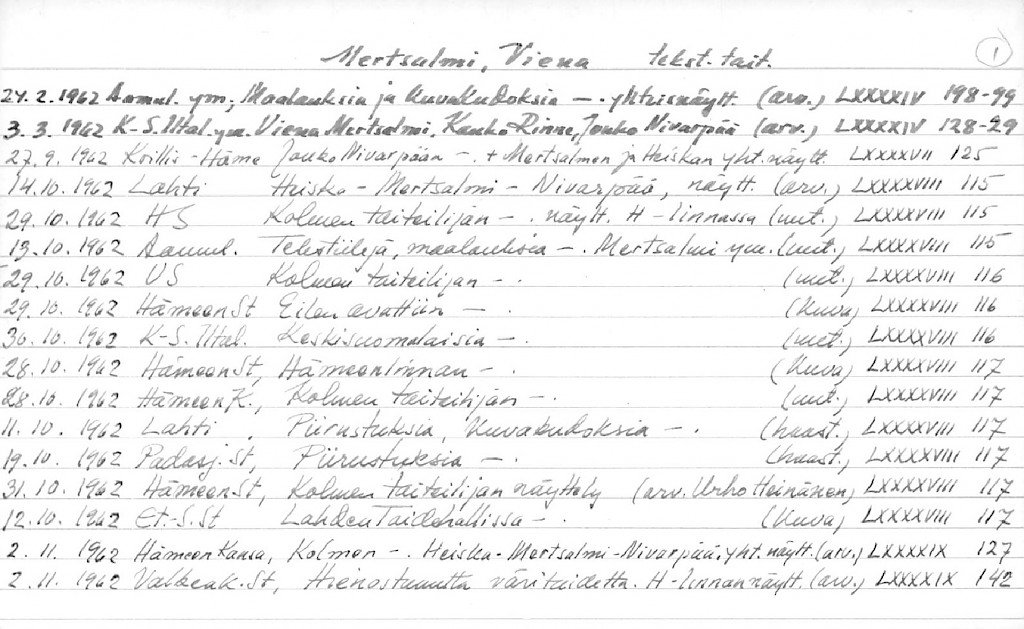 Mertsalmi, Viena tekst. tait. 1
24.2.1962 Aamul. ym., Maalauksia ja kuvakudoksia – . yhteisnäytt. (arv.) LXXXXIV 198-99
3.3.1962 K-S.Iltal. ym. Viena Mertsalmi, Kauko Rinne, Jouko Nivarpää (arv.) LXXXXIV 128-29
27.9.1962 Koillis-Häme Jouko Nivarpään – . + Mertsalmen ja Heiskan yht.näytt. LXXXXVII 125
14.10.1962 Lahti Heiska - Mertsalmi - Nivarpää, näytt. (arv.) LXXXXVIII 115
29.10.1962 HS Kolmen taiteilijan – . näytt. H-linnassa (uut.) LXXXXVIII 115
13.10.1962 Aamul. Tekstiilejä, maalauksia – . Mertsalmi ym. (uut.) LXXXXVIII 115
29.10.1962 US Kolmen taiteilijan – . (uut.) LXXXXVIII 116
29.10.1962 Hämeen St Eilen avattiin – . (kuva) LXXXXVIII 116
30.10.1962 K-S.Iltal. Keskisuomalaisia – . (uut.) LXXXXVIII 116
28.10.1962 Hämeen St, Hämeenlinnan – . (kuva) LXXXXVIII 117
28.10.1962 Hämeen K., Kolmen taiteilijan – . (uut.) LXXXXVIII 117
11.10.1962 Lahti, Piirustuksia, kuvakudoksia – . (haast.) LXXXXVIII 117
19.10.1962 Padasj. St, Piirustuksia – . (haast.) LXXXXVIII 117
31.10.1962 Hämeen St, Kolmen taiteilijan näyttely (arv. Urho Heinänen) LXXXXVIII 117
12.10.1962 Et-S.St Lahden Taidehallissa – . (kuva) LXXXXVIII 117
2.11.1962 Hämeen Kansa, Kolmen – . Heiska-Mertsalmi-Nivarpää yht.näytt. (arv.) LXXXXIX 127
2.11.1962 Valkeak. St, Hienostunutta väritaidetta H-linnan näytt. (arv.) LXXXXIX 142